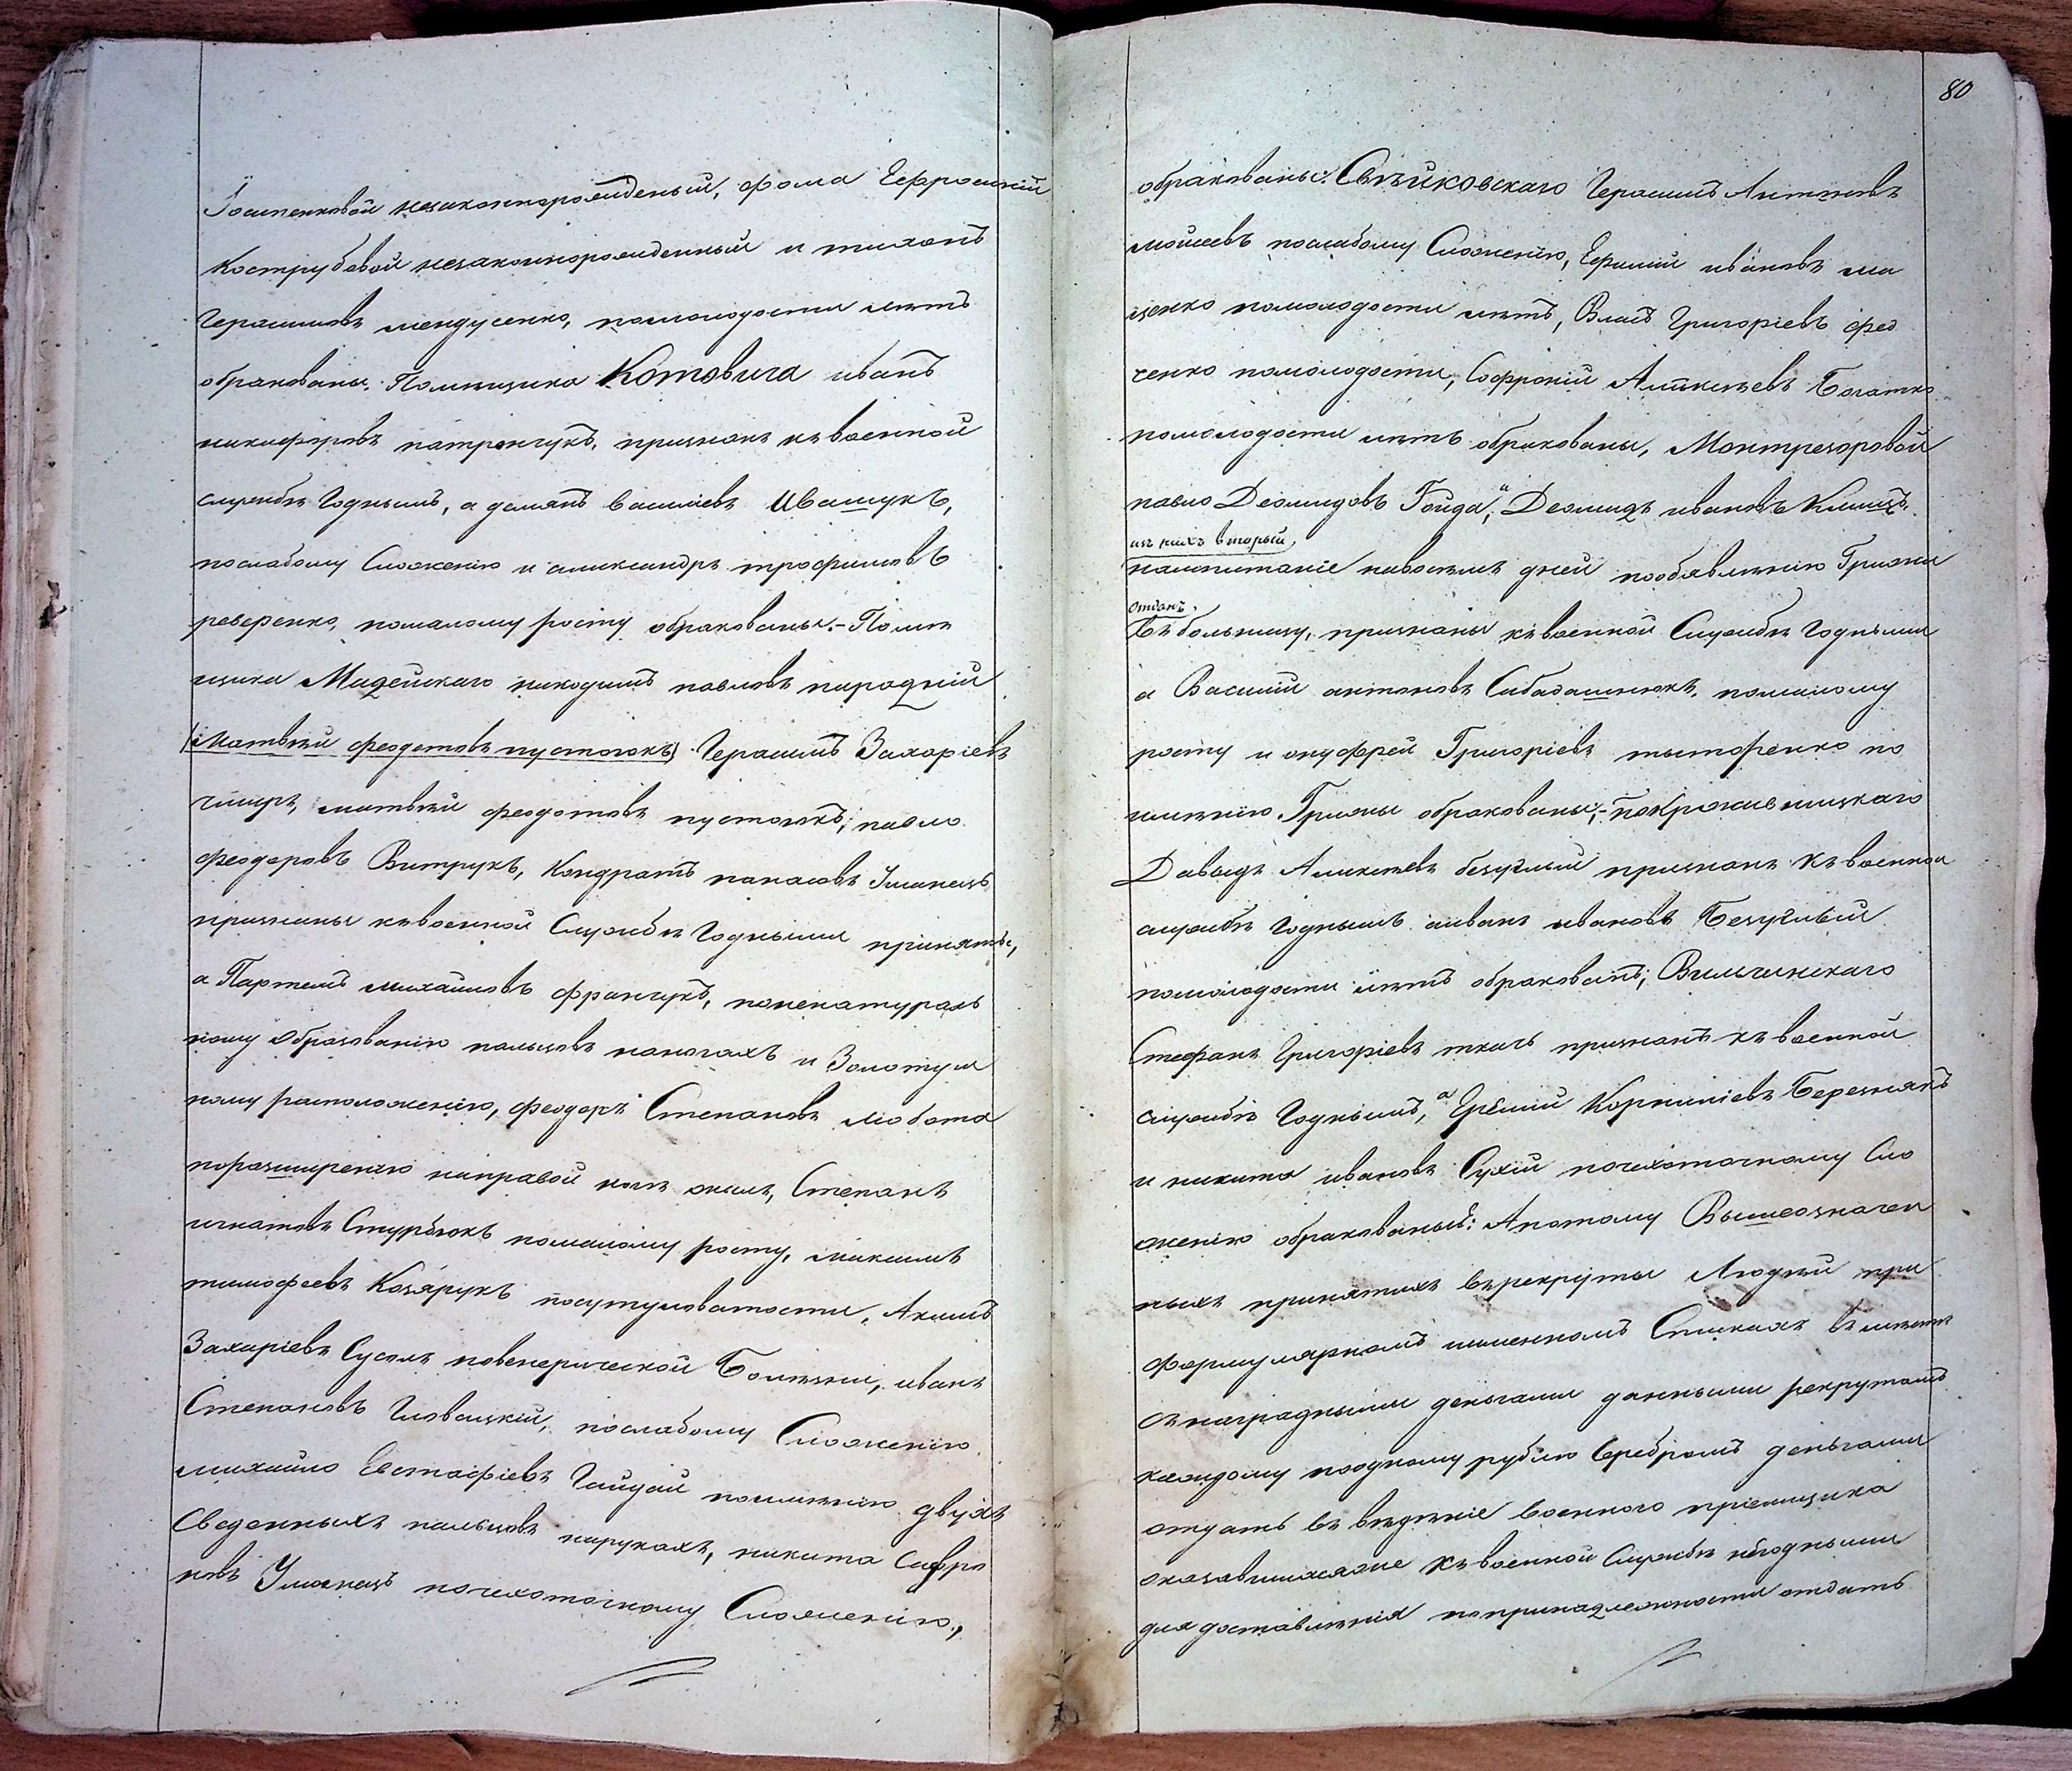 незаконнорожденый, фома Ефросиніи
Кострубовой незаконнорожденный и тихонъ
Герасимовъ мендусенко, помолодости лѣтъ
обракованы. Помѣщика Котовича иванъ
никифоровъ патранчукъ, признанъ къ военной
службѣ Годнымъ, а демянъ василіевъ Ивашукъ,
послабому Сложенію и александръ трофимовъ
реверенко, помалому росту обракованы. – Помѣ
щика Мадейскаго никодимъ павловъ народній
(Матвѣй феодетовъ пустоюкъ) Герасимъ Захаріевъ
чмиръ, матвѣй феодотовъ пустоюкъ, павло
феодоровъ Витрукъ, Кондратъ панасовъ Уманецъ
признаны къ военной Службѣ Годными приняты,
а Партемъ михайловъ франчукъ, поненатураль
ному образованію пальцовъ наногахъ и Золотуш
ному расположенію, феодоръ Степановъ люботa
поразширенію направой ноге жилъ, Степанъ
игнатовъ Стурбюкъ помалому росту, максимъ
тимофеевъ Козярукъ посутуловатости, Акимъ
Захаріевъ Сусолъ повенерической Болѣзни, иванъ
Степановъ Гловацкій, послабому Сложенію
михайло Евстафіевъ Гайдай поимѣнію двухъ
Сведенныхъ пальцовъ нарукахъ, никита Савро
новъ Уманецъ почехоточному Сложенію,
80
обракованы: Свѣйковскаго Герасимъ Антоновъ
мойсеевъ послабому Сложенію, Ефимій ивановъ ма
ценко помолодости лѣтъ, Власъ Григоріевъ фед
ченко помолодости, Софроній Алѣксѣевъ Богатко
помолодости лѣтъ обракованы, Монтрезоровой
павло Деомидовъ Гойда, и Деомидъ ивановъ Клишъ
изъ нихъ вторый,
наиспитаніе навосемъ дней пообявленію Грижи
отданъ,
въ больницу, признаны къ военной Службѣ Годными
а Василій антоновъ Сабадашнюкъ, помалому
росту и онуфрей Григоріевъ тытаренко по
имѣнію Грижи обракованы;
Давыдъ Алексѣевъ безуглый признанъ къ военной
службѣ Годнымъ аиванъ ивановъ Безуглый
помолодости лѣтъ обракованъ; Вильчинскаго
Стефанъ Григоріевъ ткачъ признанъ къ военной
службѣ Годнымъ, а Ерёмій Корниліевъ Березнякъ
и никита ивановъ Сухій почехоточному Сло
женію обракованы: Апотому Вышеозначен
ныхъ принятихъ въ рекруты Людѣй при
формулярномъ именномъ Спискахъ вместѣ
съ наградными деньгами данными рекрутамъ
каждому поодному рублю Серебромъ деньгами
отдать въ вѣдѣніе военного пріемщика
оказавшихсяже къ военной Службѣ негодными
для доставлѣнія попринадлежности отдать